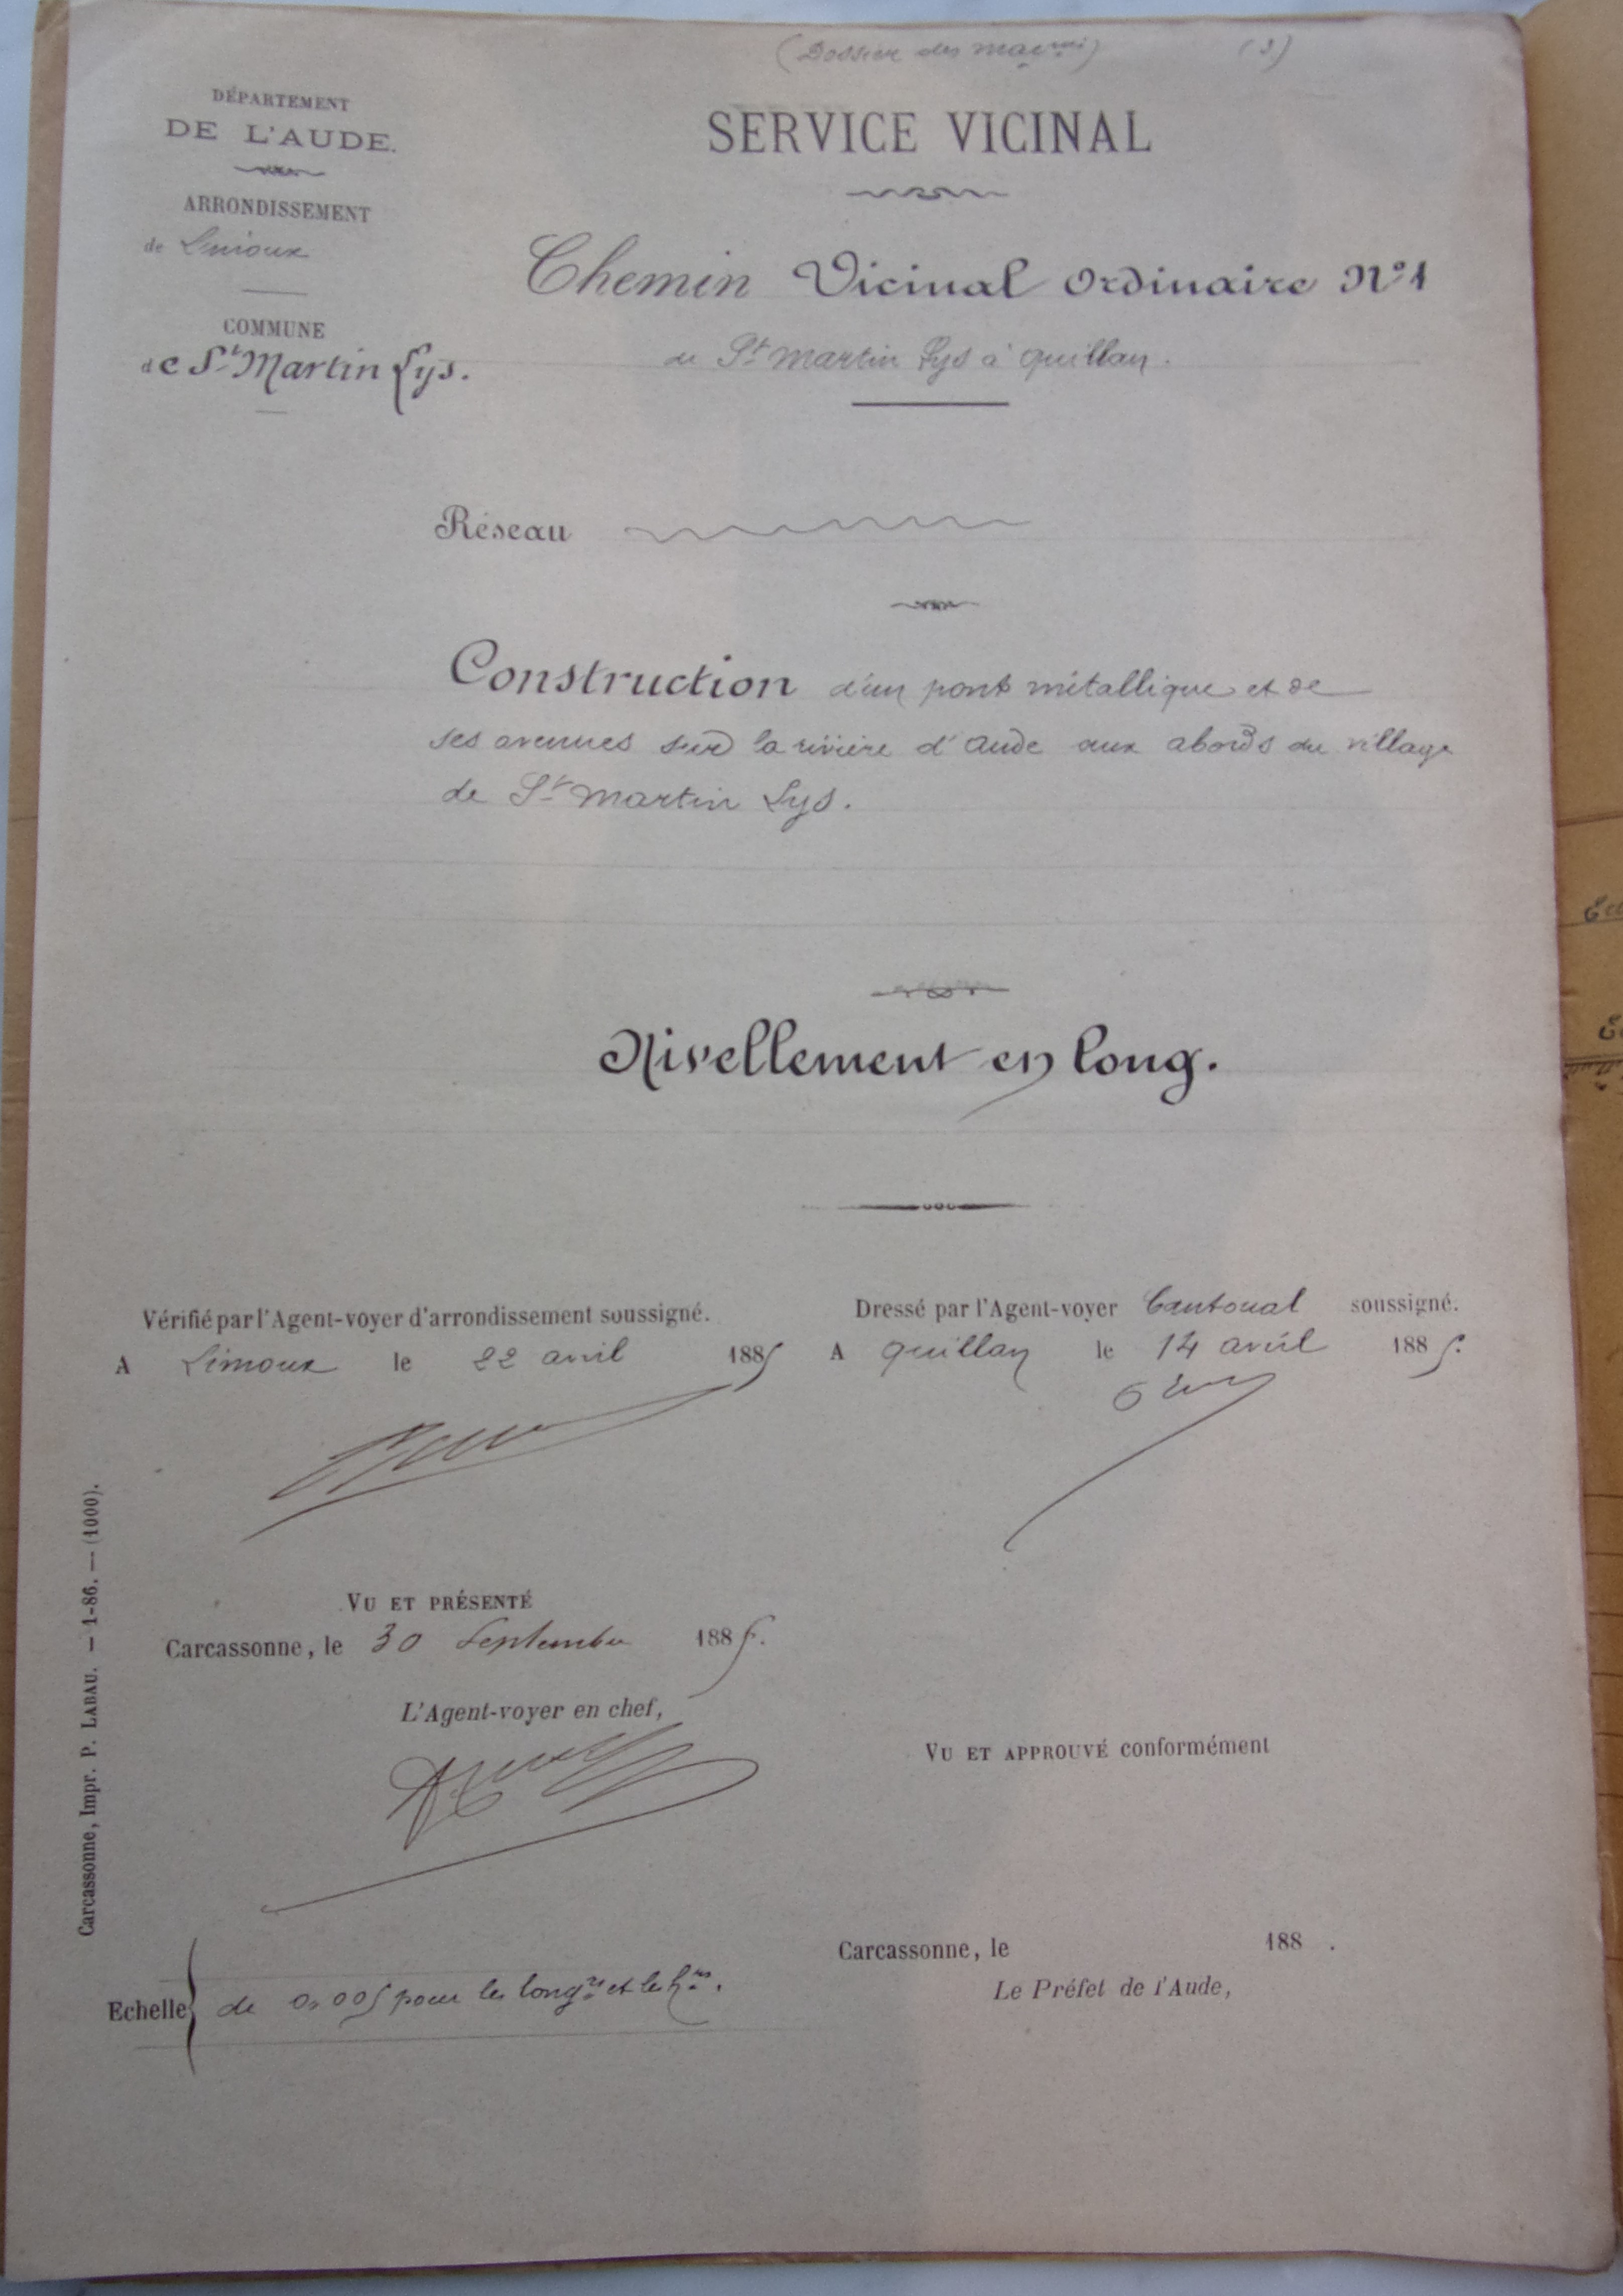 (Dossier des maçons) (3)
DÉPARTEMENT
DE L'AUDE.
ARRONDISSEMENT
de Limoux
COMMUNE
de St Martin Lys.
SERVICE VICINAL
Chemin Vicinal Ordinaire N°1
de St Martin Lys à Quillan.
Réseau
Construction d'un pont métallique et de
ses avenues sur la rivière d'Aude aux abords du village
de St Martin Lys.
Nivellement en long.
Vérifié par l'Agent-voyer d'arrondissement soussigné.
A Limoux le 22 avril 1885
Dressé par l'Agent-voyer Cantonal soussigné.
A Quillan le 14 avril 1885.
VU ET PRÉSENTÉ
Carcassonne, le 30 Septembre 1885.
L'Agent-voyer en chef,
VU ET APPROUVÉ conformément
Carcassonne, le 188 .
Le Préfet de l'Aude,
Echelle de 0,005 pour les longrs et les hrs.
Carcassonne, Impr. P. LABAU. — 1-86. — (1000).